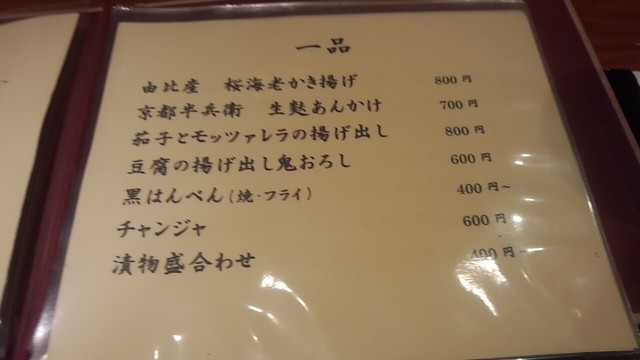 一品
由比産　桜海老かき揚げ　800円
京都半兵衛　生麩あんかけ　700円
茄子とモッツァレラの揚げ出し　800円
豆腐の揚げ出し鬼おろし　600円
黒はんぺん(焼・フライ)　400円~
チャンジャ　600円
漬物盛合わせ　400円~